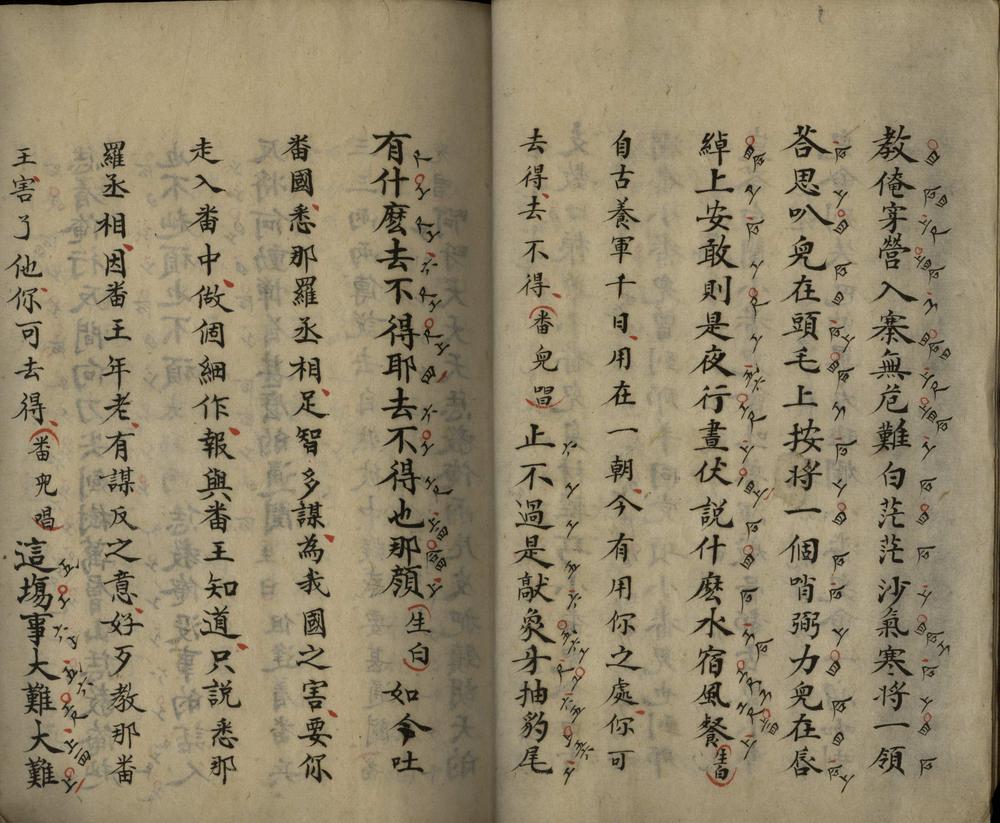 教俺穿營入寨無危難白茫茫沙氣寒將一領
荅思叭兒在頭毛上按將一個哨弼力兒在唇
綽上安敢則是夜行晝伏説什麽水宿風餐生白
自古養軍千日用在一朝今有用你之處你可
去得去不得番兒唱止不過是敲象牙抽豹尾
有什麽去不得耶去不得也那顔生白如今吐
番國悉那羅丞相足智多謀為我國之害要你
走入番中做個細作報與番王知道只説悉那
羅丞相因番王年老有謀反之意好歹教那番
王害了他你可去得番兒唱這塲事大難大難